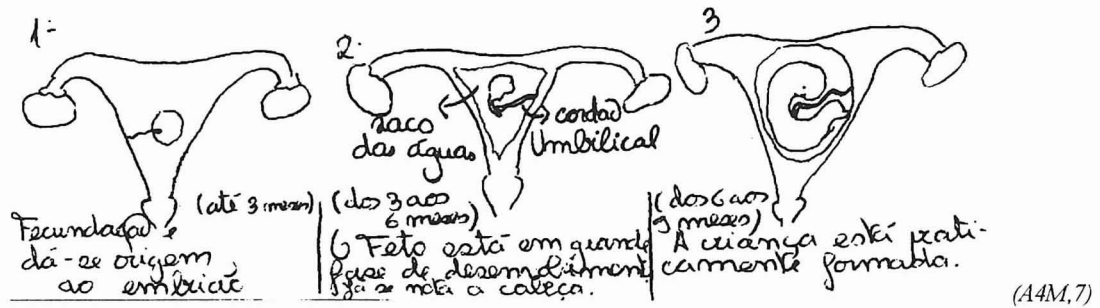 1-
(até 3 meses)
Fecundação e
dá-se origem
ao embrião
2-
saco
das águas
cordão
Umbilical
(dos 3 aos
6 meses)
O Feto está em grande
fase de desenvolviment
já se nota a cabeça.
3
(dos 6 aos
9 meses)
A criança está prati-
camente formada.
(A4M,7)